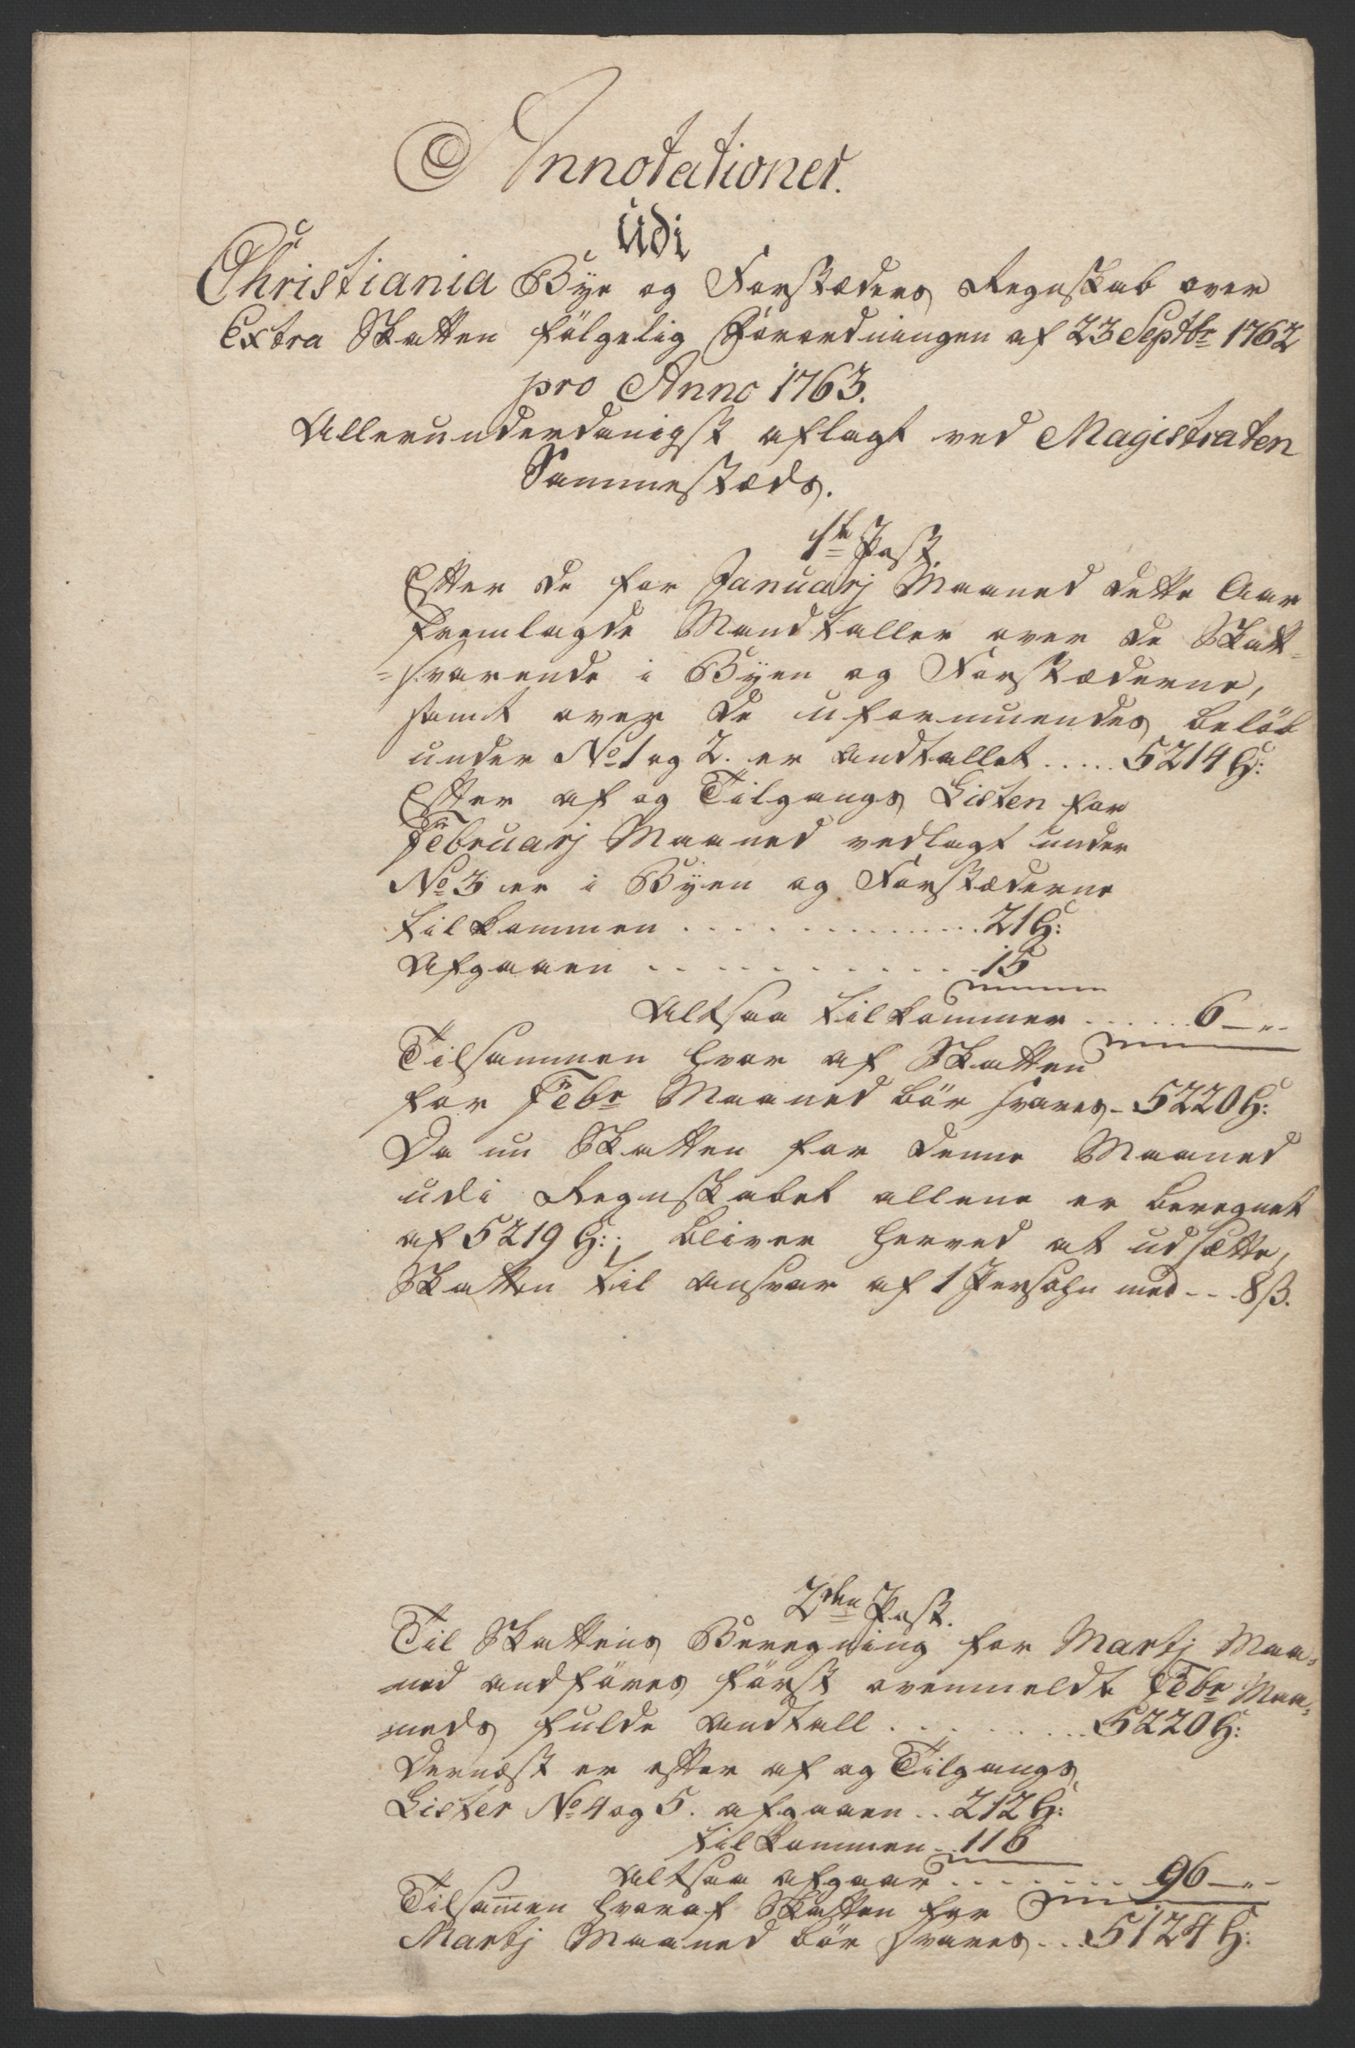 Annotationer.
Udi
Christiania Bye og Forstæders Regnskab over
Extra Skatten følgelig Forordningen af 23 Septbr 1762
pro Anno 1763.
Allerunderdanigst aflagt ved Magistraten
Sammestæds.
1te Post.
Efter de for Januarj Maaned dette Aar
fremlagde Mandtaller over de Skatt-
=svarende i Byen og Forstæderne,
samt over de uformuendes beløb
under No 1 og 2. er Andtallet ..... 5214 H:
Efter af og Tilgangs Listen for
Februarj Maaned vedlagt under
No 3 er i Byen og Forstæderne
tilkommen .............. 21 H:
Afgaaen ........... 15
Altsaa tilkommer ...... 6 — " -
Tilsammen hvor af Skatten
for Febr Maaned bør svares - 5220 H:
Da nu Skatten for denne Maaned
udi Regnskabet allene er beregnet
af 5219 H:, bliver herved at udsætte,
Skatten til Ansvar af 1 Persohn med ... 8 ß.
2den Post.
Til Skattens Beregning for Martj Maa=
ned andføres først ovenmeldte Febr Maa=
neds fulde Andtall ........ 5220 H:
Dernæst er efter af og Tilgangs
Lister No 4 og 5. afgaaen .. 212 H:
tilkommen .. 116
Altsaa afgaar ........ 96 — " -
Tilsam̅en hvoraf Skatten for
Martj Maaned bør svares ... 5124 H: